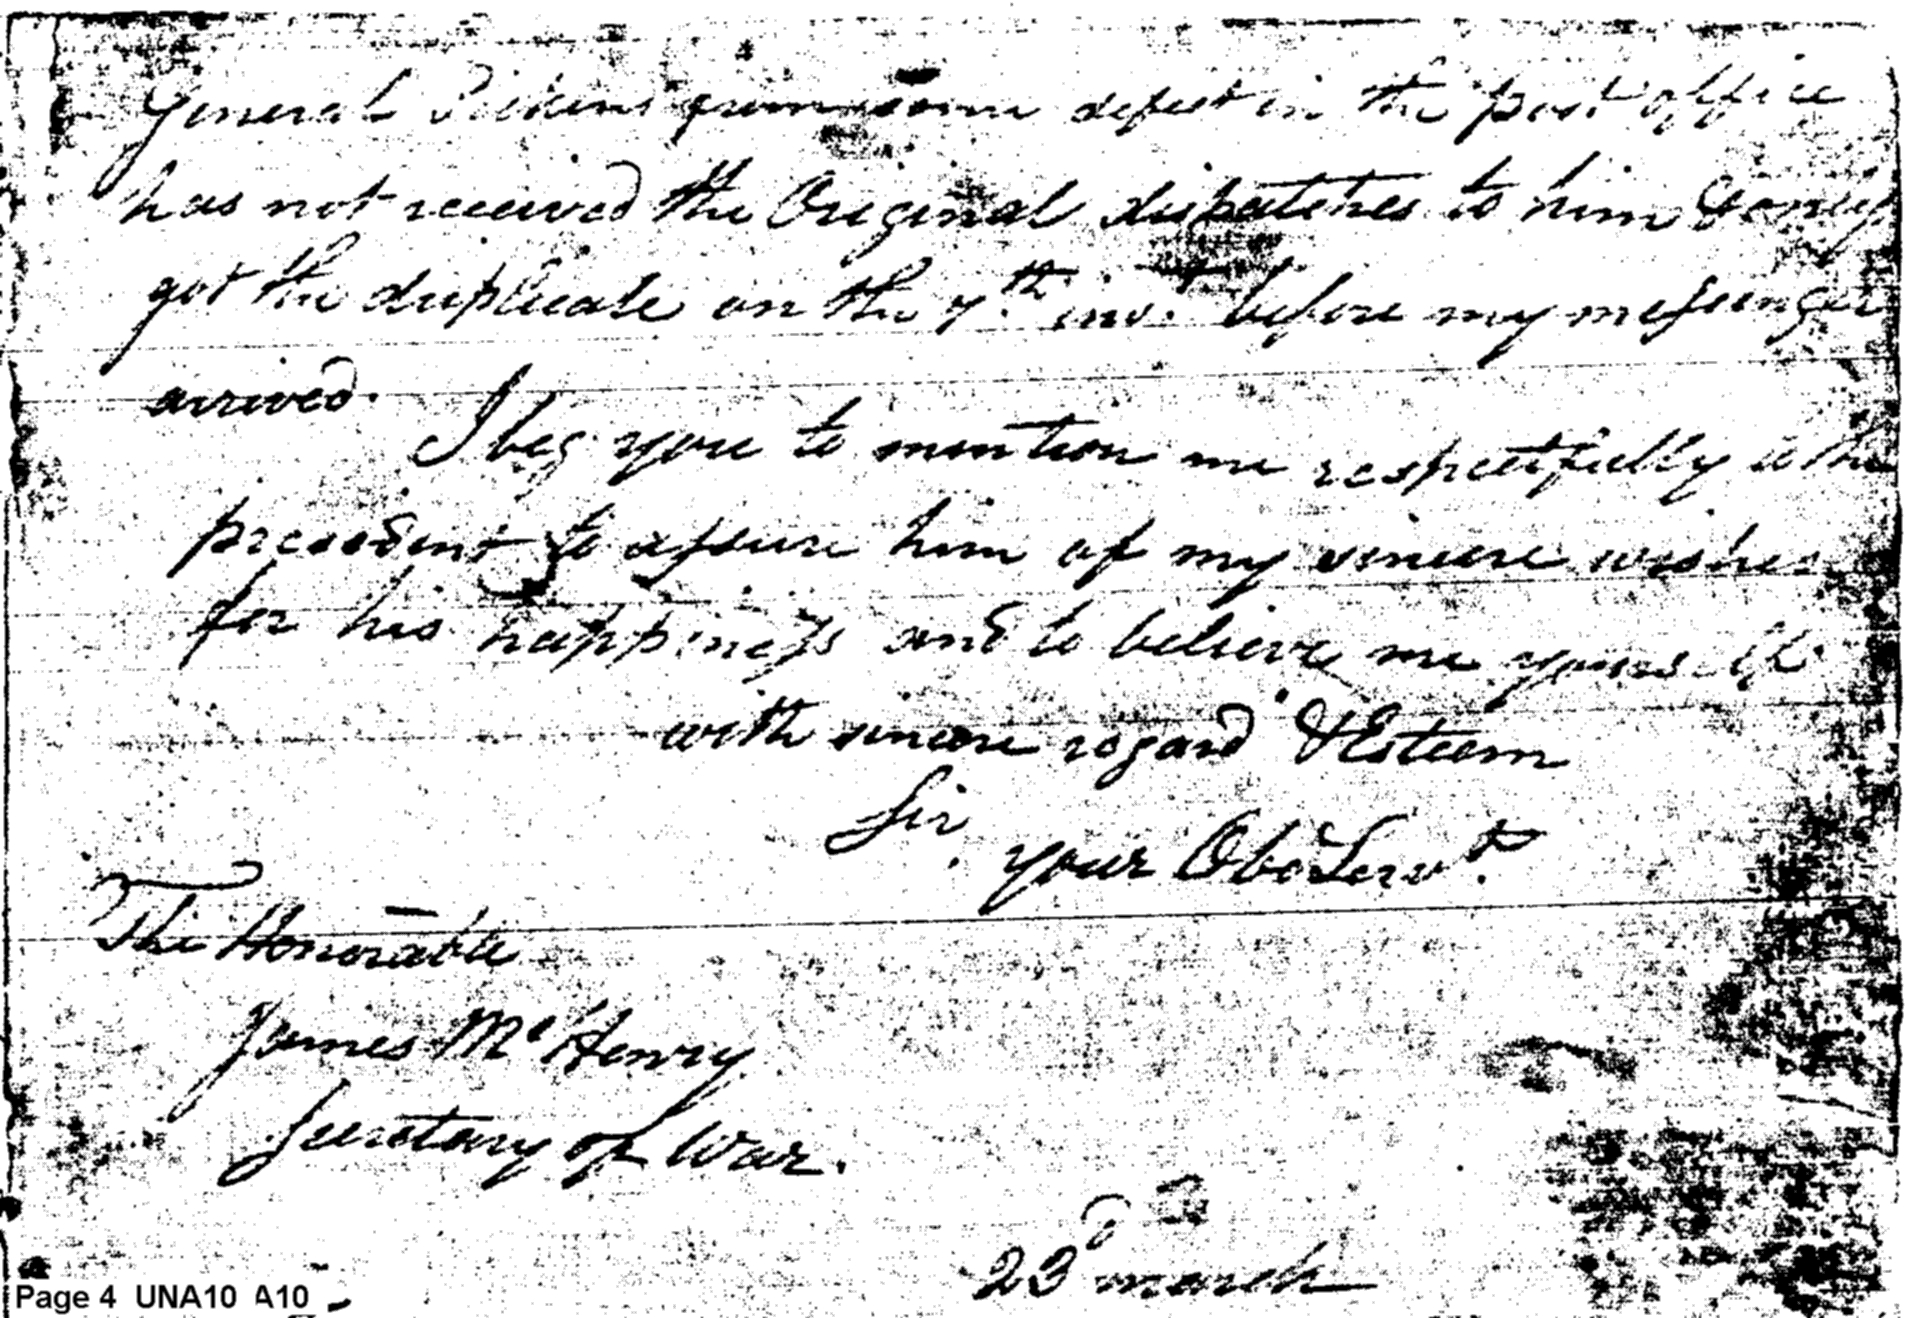 General Pickens from some defect in the post office
has not received the Original dispatches to him & only
got the duplicate on the 7.th ins.t before my messenger
arrived.
I beg you to mention me respectfully to the
president to assure him of my sincere wishes
for his happiness and to believe me yourself
with sincere regard & Esteem
Sir
your Obd Serv.t
The Honorable
James Mc Henry
Secretary of War.
23d march
Page 4 UNA10 A10